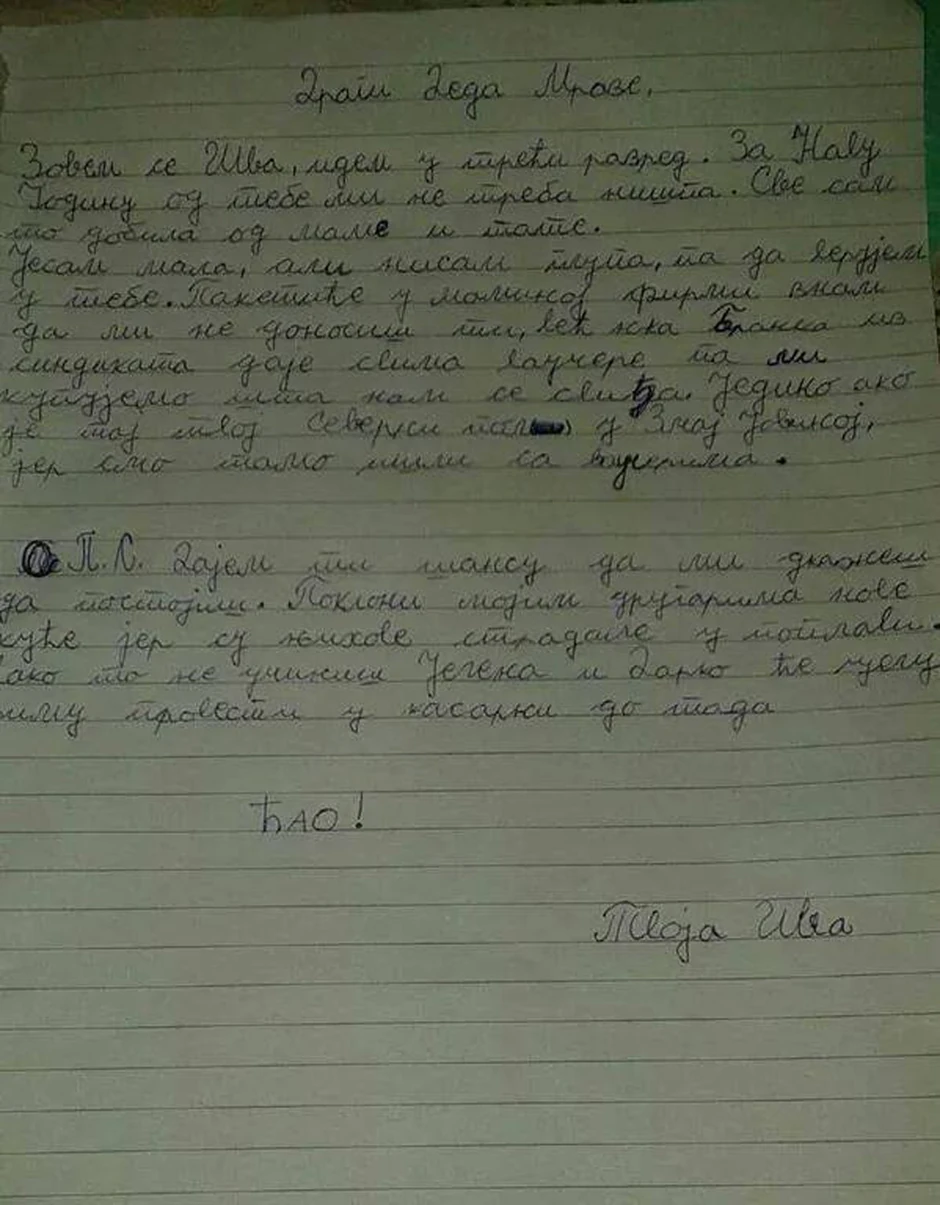 Драги Деда Мразе,
Зовем се Ива, идем у трећи разред. За Нову
Годину од тебе ми не треба ништа. Све сам
то добила од маме и тате.
Јесам мала, али нисам глупа, па да верујем
у тебе. Пакетиће у маминој фирми знам
да ми не доносиш ти, већ нка Бранка из
синдиката даје свима ваучере па ми
купујемо шта нам се свиђа. Једино ако
је тај твој Северни пол у Змај Јовиној,
јер смо тамо ишли са ваучерима.
П.С. Дајем ти шансу да ми докажеш
да постојиш. Поклони мојим другарима нове
куће јер су њихове страдале у поплави.
ако то не учиниш Јелена и Дарко ће целу
зиму провести у касарни до тада
ЋАО!
Твоја Ива